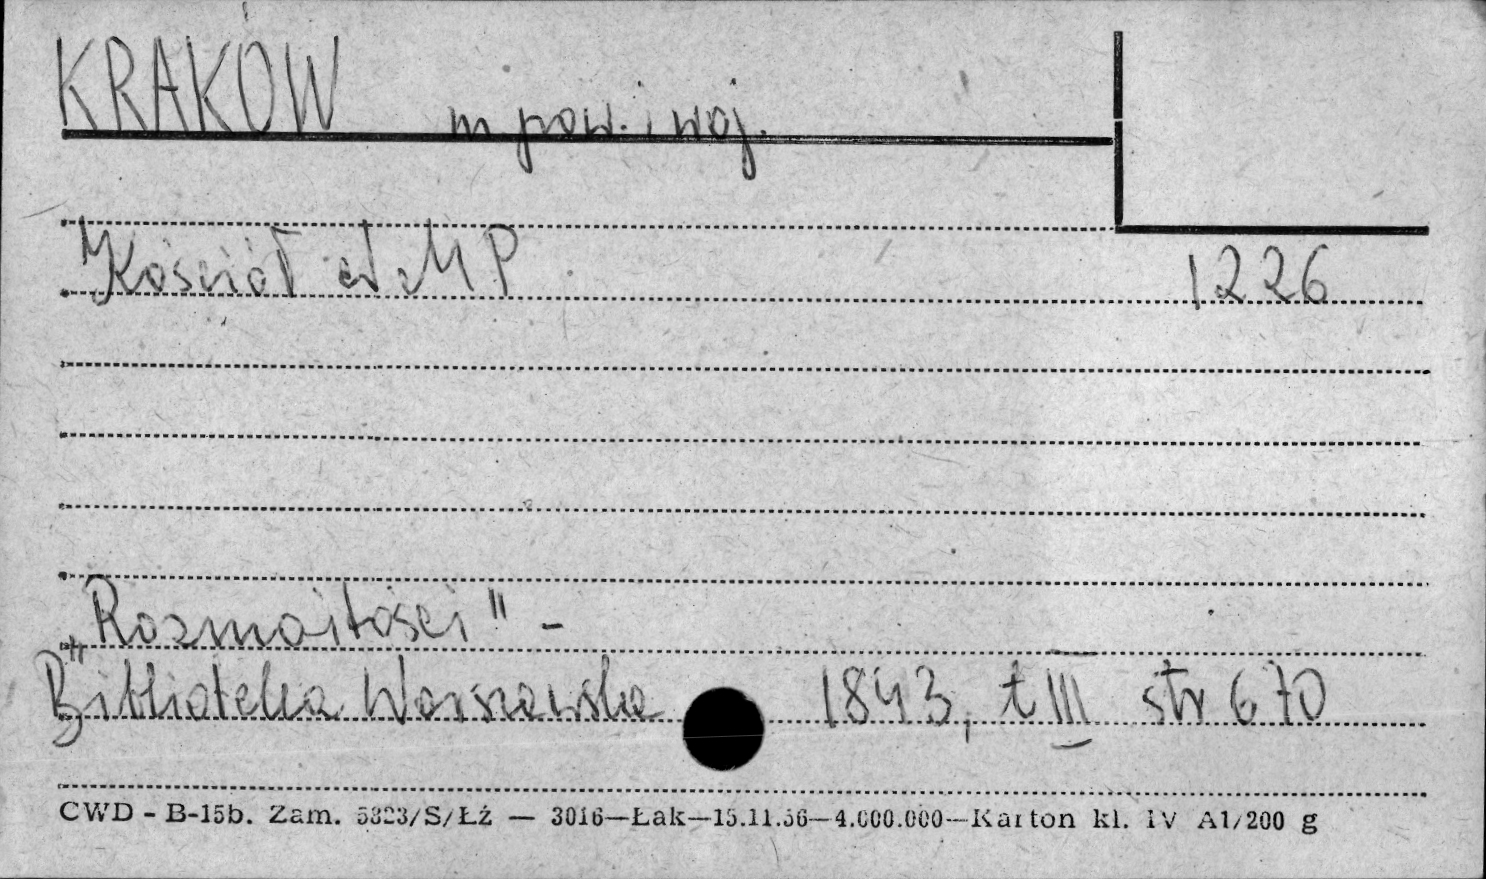 KRAKÓW m pow. i woj.
Kościół WMP 1226
"Rozmaitości" -
Biblioteka Warszawska 1843, t III str 670
CWD - B-15b. Zam. 5323/S/Łź — 3016—Łak—15.11.56—4.000.000—Karton kl. IV A1/200 g